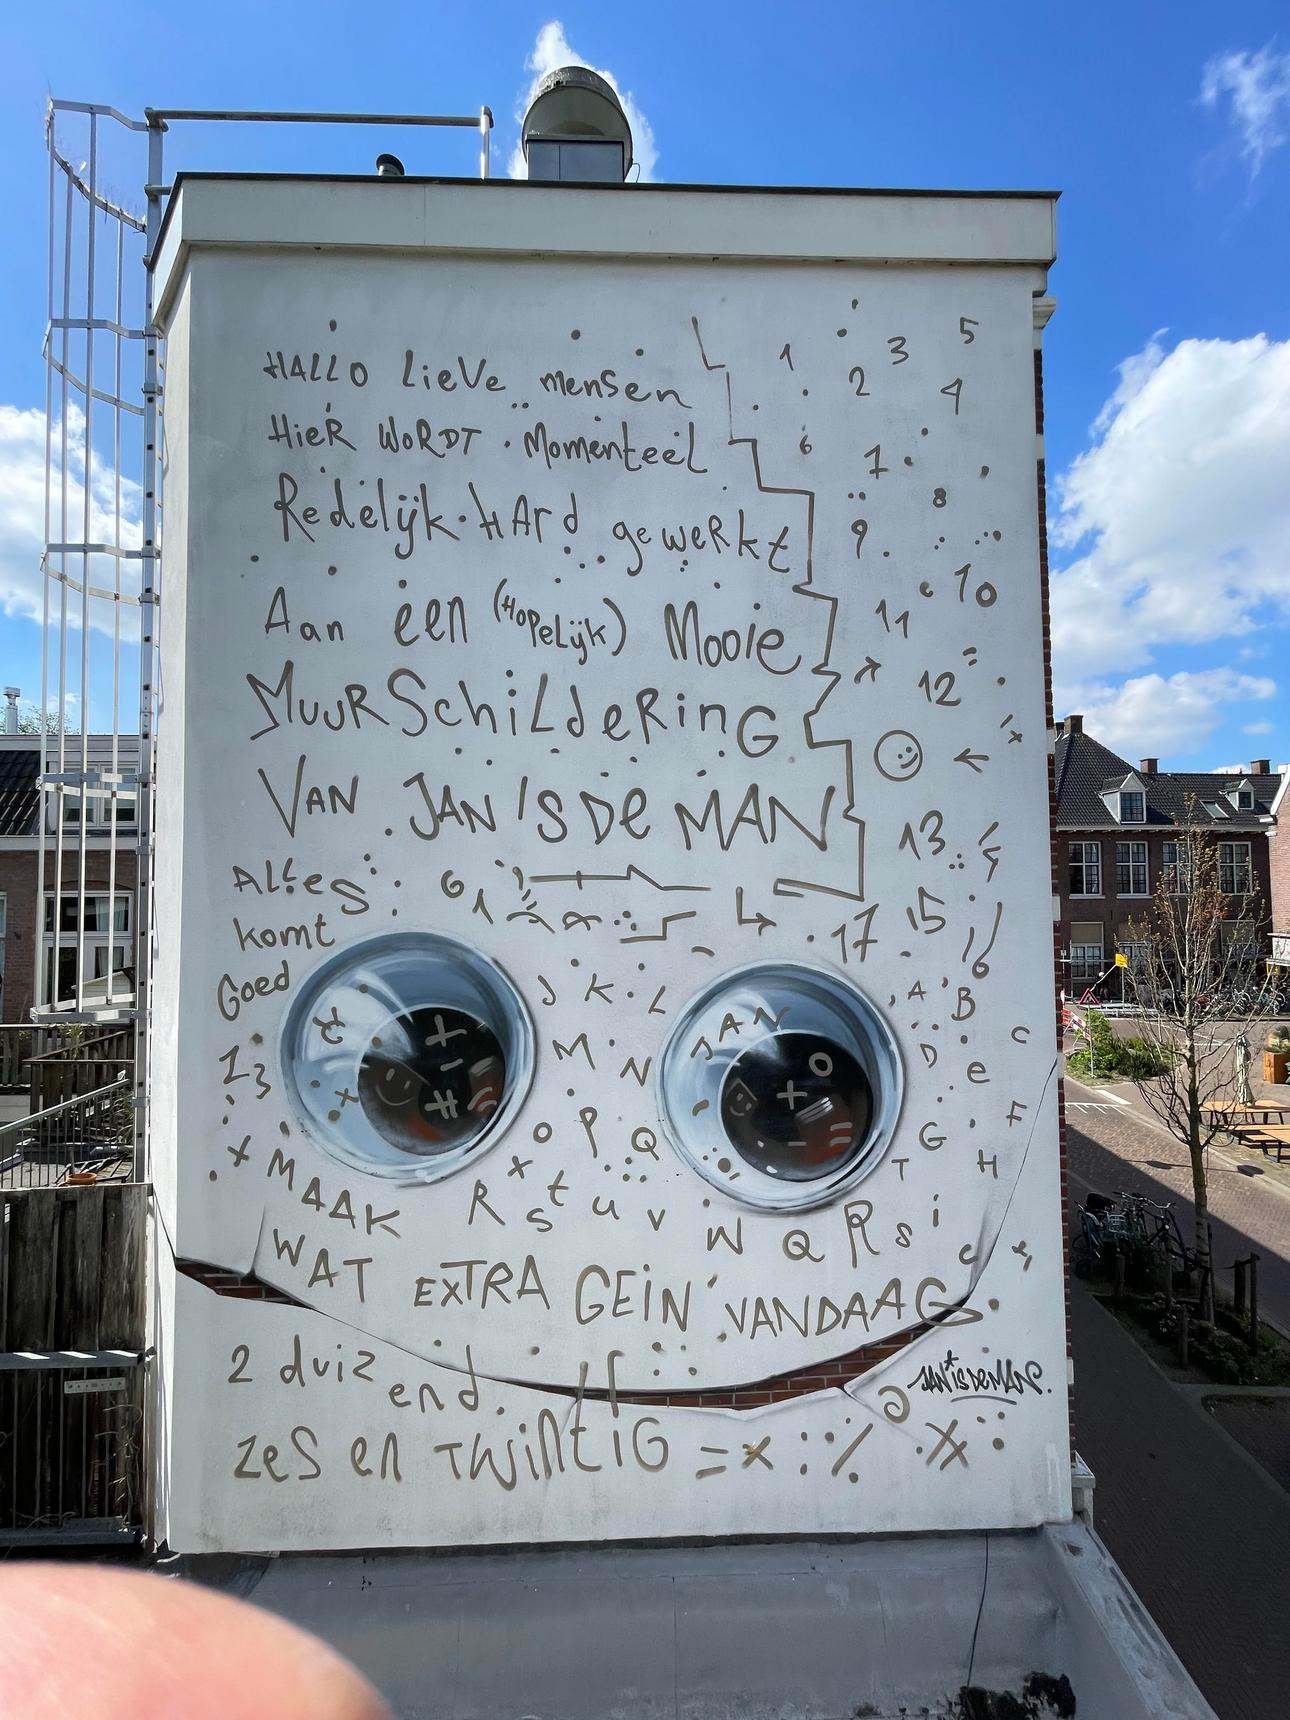 HALLO LieVe mensen
HieR WORDT Momenteel
Redelijk HArd gewerkt
Aan een (HOPeLijk) Mooie
MuuRSchiLdeRinG
VAN JAN IS De MAN
ALLes
komt
Goed
1 2 3 4 5
6 7
8
9
10
11
12
13
15
16
17
6 1
J K L
M N
O P Q
R S t u v W
Q R S i
A B
C
D e
F
G
T H
JAN
MAAK
WAT EXTRA GEiN VANDAAG
2 duiz end
zes en TWiNtiG = x : % . X
JAN IS De MAN.